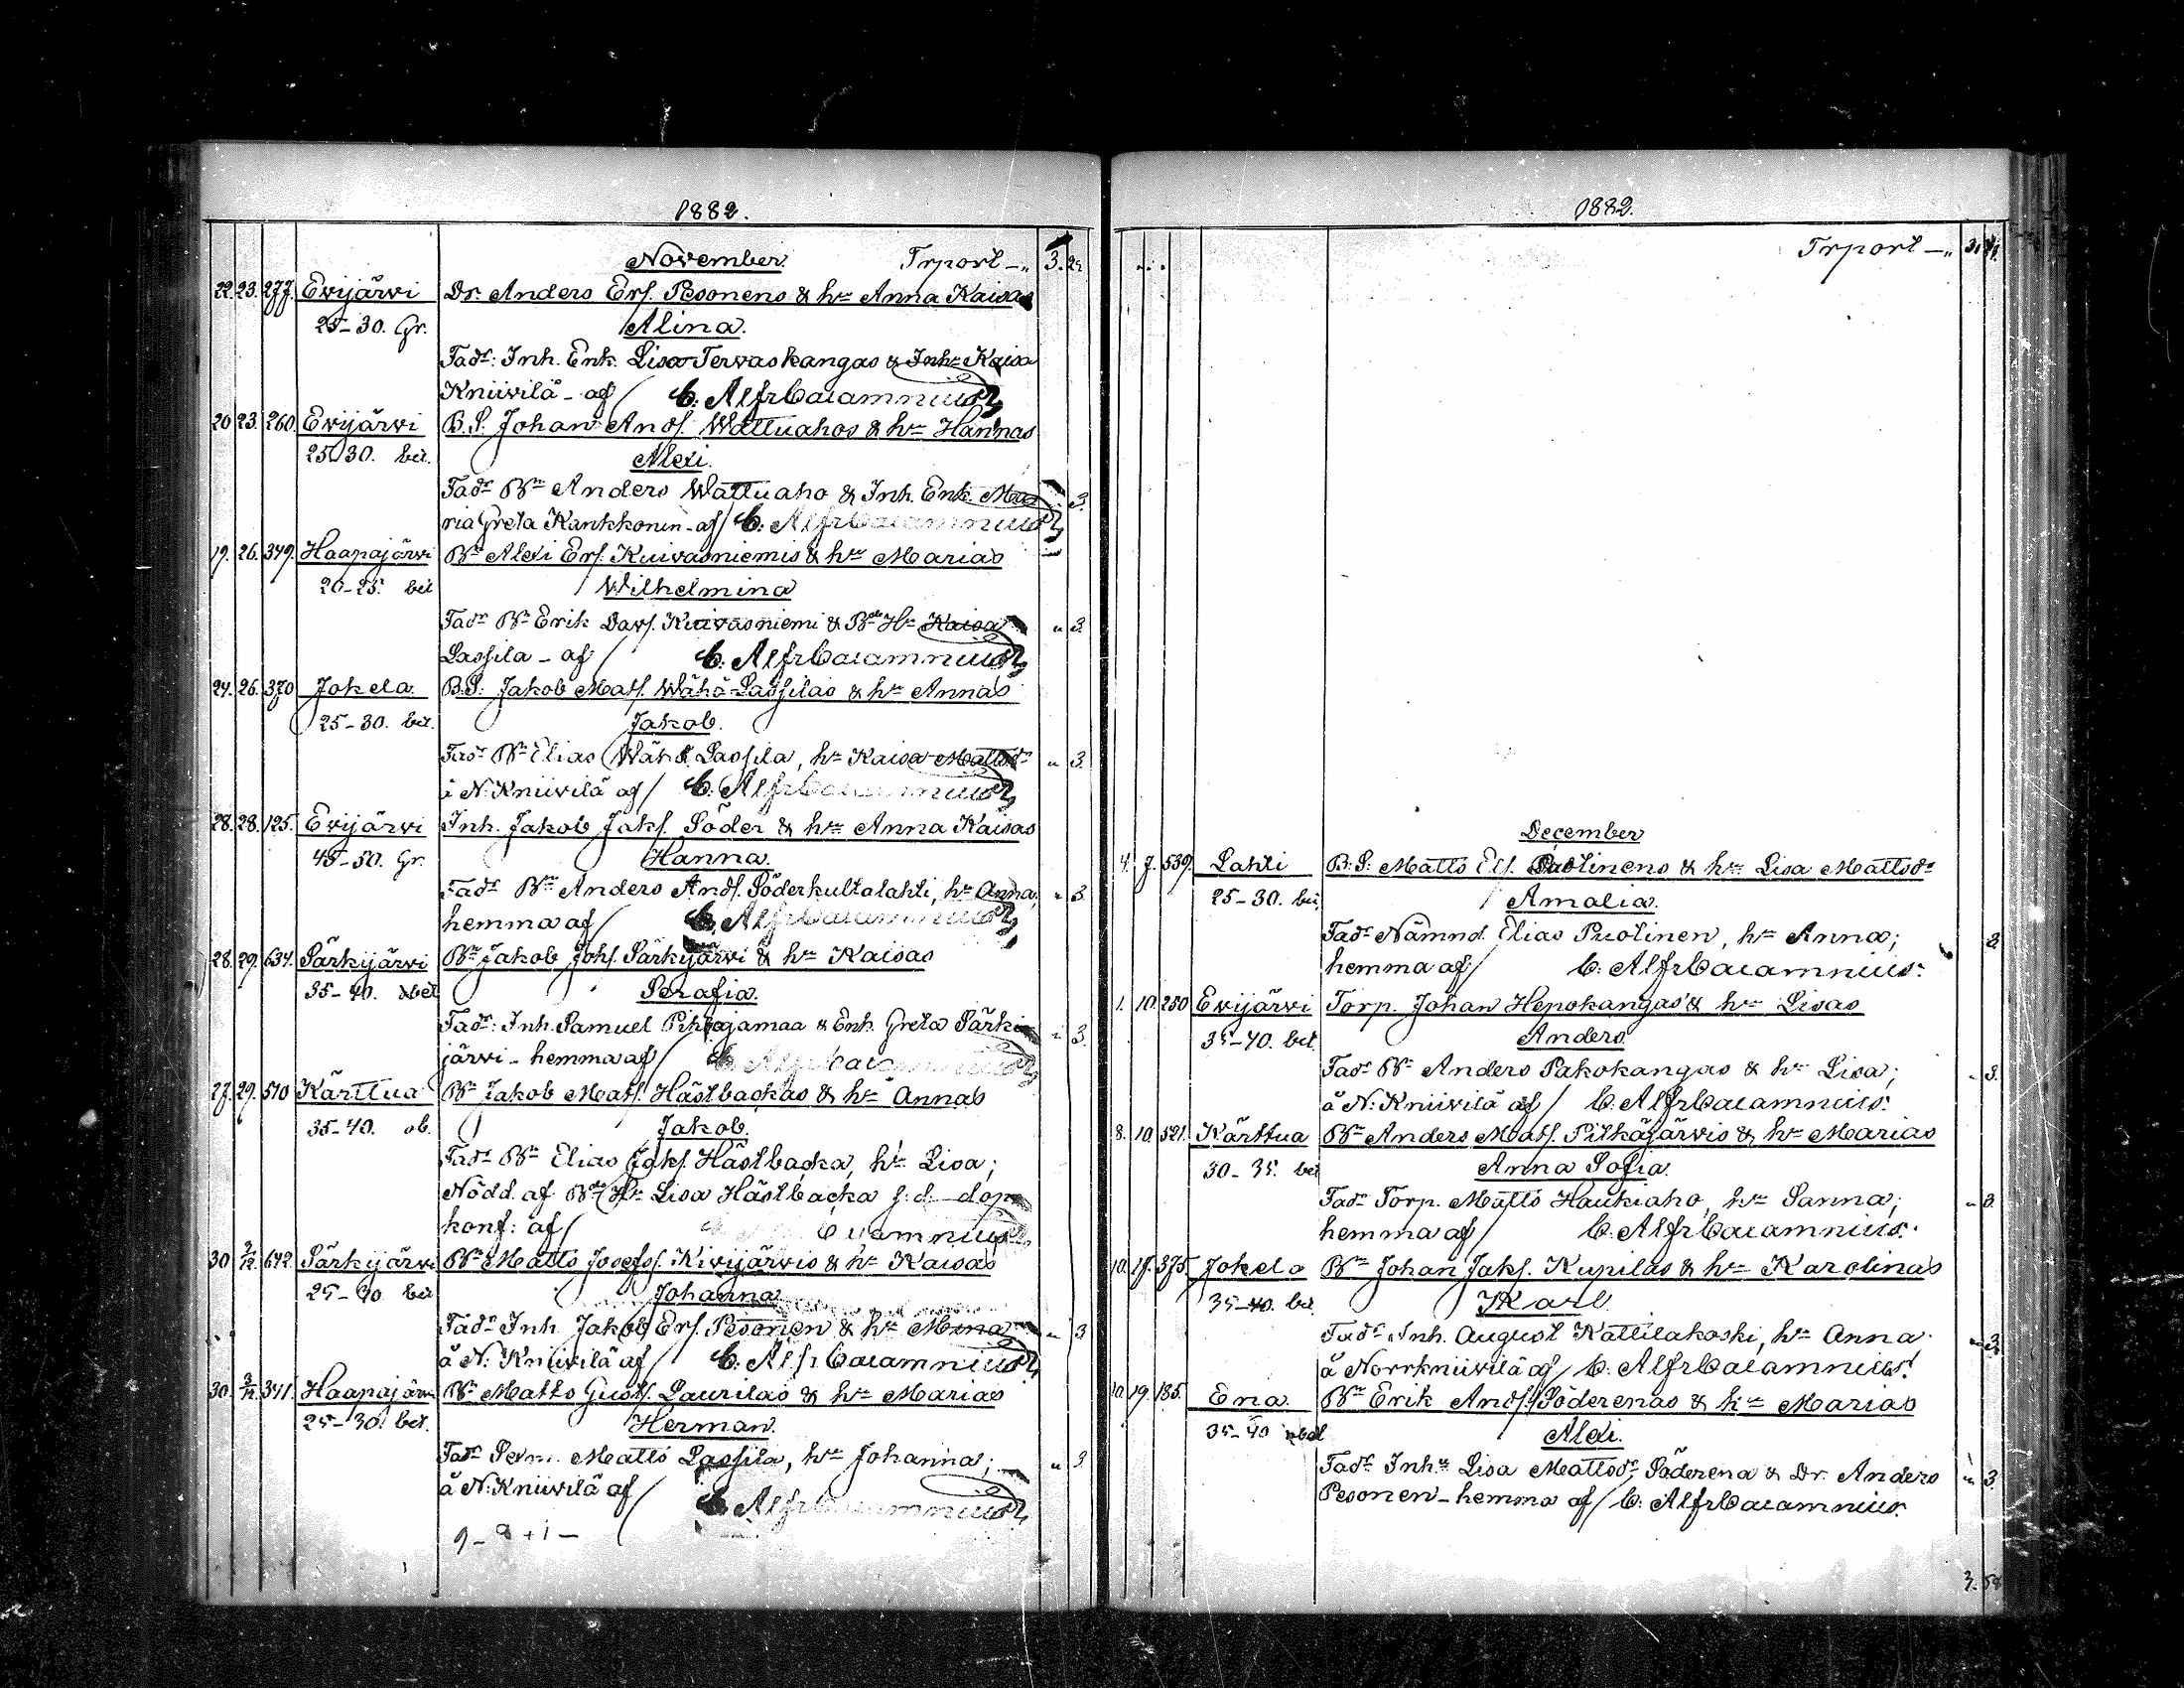 1882.
November. Trport — „ 3.
22. 23. 277. Evijärvi Dr. Anders Ers. Pesonens & hu Anna Kaisas
25-30. Gr. Alina.
Fadr: Inh. Enk. Lisa Tervaskangas & Inhn Kaisa
Kniivilä - af / C. Alfr Calamnius
20 23. 260. Evijärvi B.S. Johan Ands. Wattuahos & hu Hannas
25-30. bet. Alexi.
Fadr Bn Anders Wattuaho & Inh. Enk. Ma-
ria Greta Kankkonen - af / C. Alfr Calamnius „ 3.
19. 26. 349. Haapajärvi Bn Alexi Ers. Kuivasniemis & hu Marias
20-25. bet Wilhelmina
Fadr Bn Erik Davs. Kuivasniemi & Bde Hu Kaisa „ 3.
Lassila - af / C. Alfr Calamnius
24. 26. 370 Jokela. B.S: Jakob Mats. Wähä-Lassilas & hu Annas
25-30. bet. Jakob.
Fadr Bn Elias Wähä Lassila, hu Kaisa Mattsdr „ 3.
å N. Kniivilä af / C. Alfr Calamnius
28. 28. 125. Evijärvi Inh. Jakob Jaks. Söder & hu Anna Kaisas
45-50. Gr. Hanna.
Fadr Bn Anders Ands. Söderkultalahti, hu Anna, „ 3.
hemma af / C. Alfr Calamnius
28. 29. 634. Särkijärvi Bn Jakob Johs. Särkijärvi & hu Kaisas
35-40. bet Serafia.
Fadr: Inh. Samuel Pihlajamaa & Enk. Greta Särki- „ 3.
järvi - hemma af / C. Alfr Calamnius
27. 29. 510 Kärttua Bn Jakob Mats. Hästbackas & hu Annas
35-40. ob. Jakob.
Fadr Bn Elias Jaks. Hästbacka, hu Lisa;
Nödd. af Bde Hu Lisa Hästbacka s. d. dop
konf: af / Calamnius
30 2/12. 642. Särkijärvi Bn Matts Josefs. Kivijärvis & hu Kaisas
25-30 bet Johanna
Fadr Inh. Jakob Ers. Pesonen & hu Mina „ 3
å N: Kniivilä af / C. Alfr Calamnius
30. 3/12. 341. Haapajärvi Bn Matts Gusts. Laurilas & hu Marias
25-30. bet. Herman.
Fadr Matts Lassila, hu Johanna; „ 3.
å N. Kniivilä af / C. Alfr Calamnius
1882.
Trport — „
December
4. 7. 539. Lahti B.S: Matts Els. Puolinens & hu Lisa Mattsdr
25-30. bet. Amalia.
Fadr Nämnd. Elias Puolinen, hu Anna; 3
hemma af / C. Alfr Calamnius.
1. 10. 250 Evijärvi Torp. Johan Hepokangas & hu Lisas
35-40. bet. Anders.
Fadr Bn Anders Pakokangas & hu Lisa; „ 3.
å N: Kniivilä af / C. Alfr Calamnius.
8. 10. 521. Kärttua Bn Anders Mats. Pitkäjärvis & hu Marias
30-35. bet Anna Sofia.
Fadr Torp. Matts Haukiaho, hu Sanna; „ 3.
hemma af / C. Alfr Calamnius.
10. 17. 375. Jokela Bn Johan Jaks. Kupilas & hu Karolinas
35-40. bet. Karl.
Fadr Inh. August Kattilakoski, hu Anna „ 3
å Norrkniivilä af / C. Alfr Calamnius.
10. 19. 185. Ena. Bn Erik Ands. Söderenas & hu Marias
35-40 bet Alexi.
Fadr Inhn Lisa Mattsdr Söderena & Dr. Anders „ 3
Pesonen - hemma af / C. Alfr Calamnius.